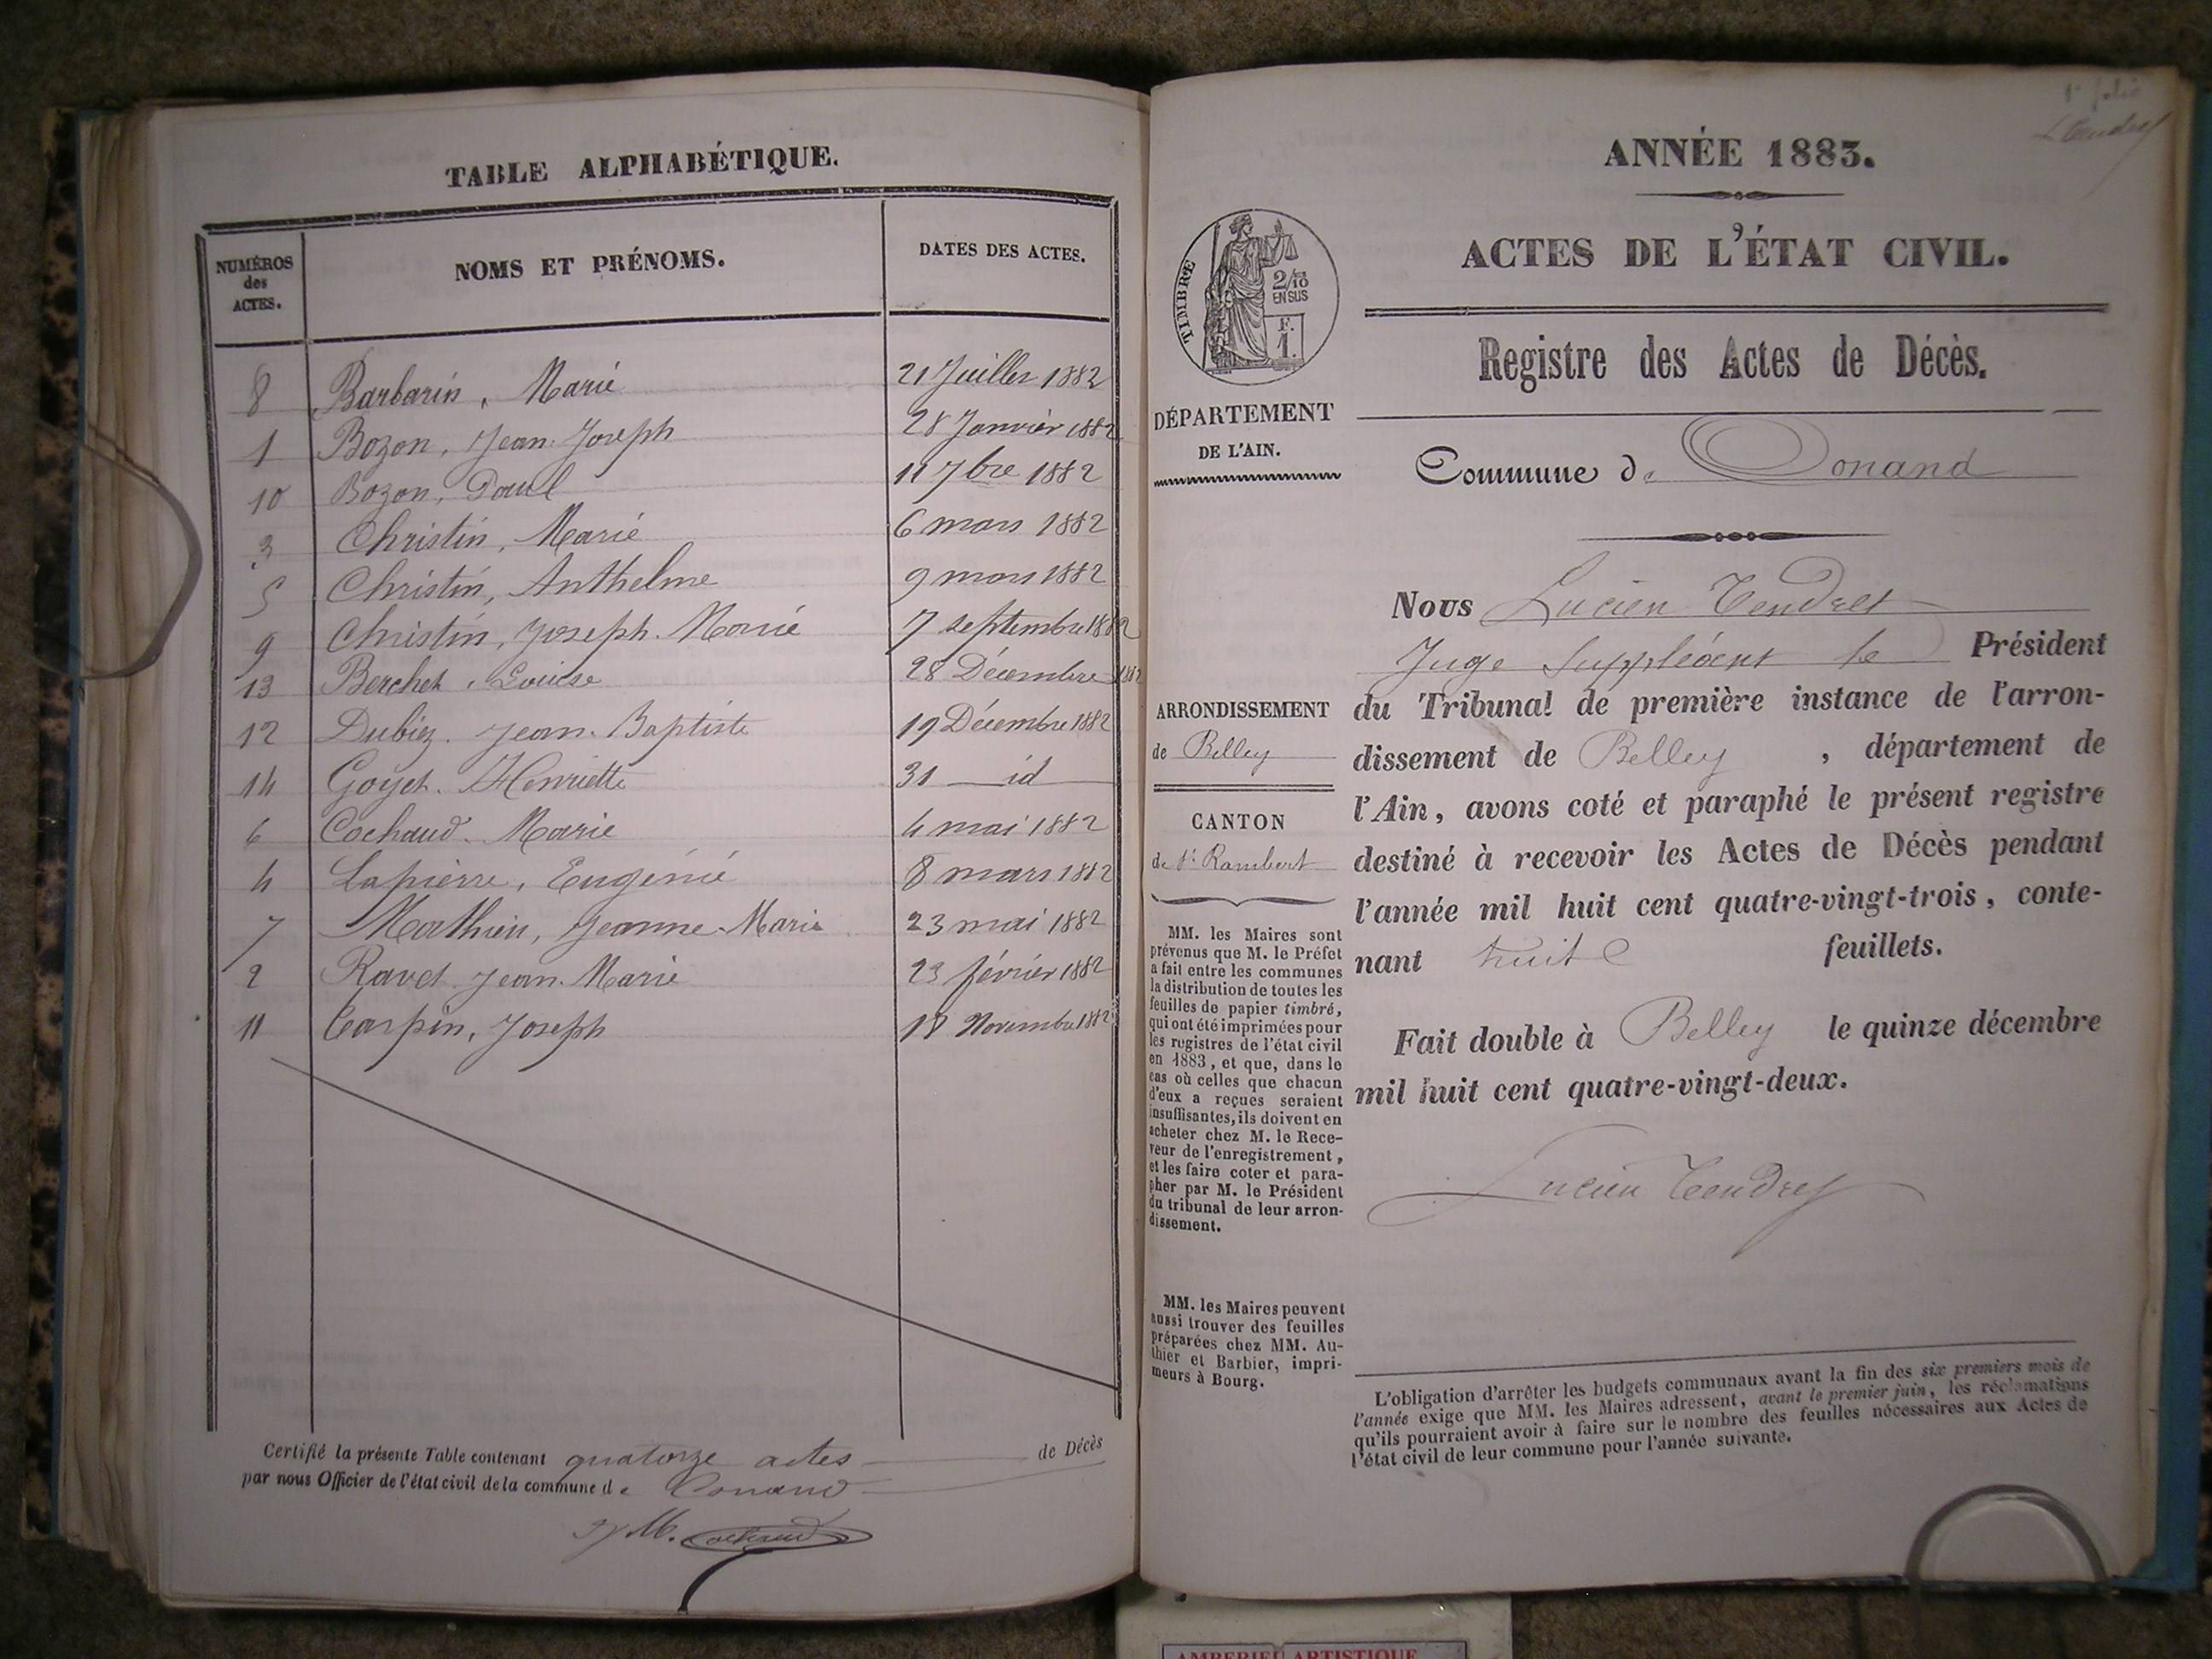 TABLE ALPHABÉTIQUE.
NUMÉROS
des
ACTES.
NOMS ET PRÉNOMS.
DATES DES ACTES.
8 Barbarin, Marie 21 Juillet 1882
1 Bozon, Jean-Joseph 28 Janvier 1882
10 Bozon, Paul 11 7bre 1882
3 Christin, Marie 6 mars 1882
5 Christin, Anthelme 9 mars 1882
9 Christin, Joseph-Marie 7 septembre 1882
13 Berchet, Louise 28 Décembre 1882
12 Dubiez. Jean-Baptiste 19 Décembre 1882
14 Goyet. Henriette 31 — id
6 Cochaud. Marie 4 mai 1882
4 Lapierre, Eugénie 8 mars 1882
7 Mathieu, Jeanne-Marie 23 mai 1882
2 Ravet Jean-Marie 23 février 1882
11 Carpin, Joseph 18 Novembre 1882
Certifié la présente Table contenant quatorze actes de Décès
par nous Officier de l'état civil de la commune de Conand
1r folio
L Tendret
ANNÉE 1883.
ACTES DE L'ÉTAT CIVIL.
TIMBRE
2/10
EN SUS
F.
1.
Registre des Actes de Décès.
DÉPARTEMENT
DE L'AIN.
Commune de Conand
Nous Lucien Tendret
Juge Suppléant le Président
du Tribunal de première instance de l'arron-
dissement de Belley, département de
l'Ain, avons coté et paraphé le présent registre
destiné à recevoir les Actes de Décès pendant
l'année mil huit cent quatre-vingt-trois, conte-
nant huit feuillets.
Fait double à Belley le quinze décembre
mil huit cent quatre-vingt-deux.
Lucien Tendret
ARRONDISSEMENT
de Belley
CANTON
de St Rambert
MM. les Maires sont
prévenus que M. le Préfet
a fait entre les communes
la distribution de toutes les
feuilles de papier timbré,
qui ont été imprimées pour
les registres de l'état civil
en 1883, et que, dans le
cas où celles que chacun
d'eux a reçues seraient
insuffisantes, ils doivent en
acheter chez M. le Rece-
veur de l'enregistrement,
et les faire coter et para-
pher par M. le Président
du tribunal de leur arron-
dissement.
MM. les Maires peuvent
aussi trouver des feuilles
préparées chez MM. Au-
thier et Barbier, impri-
meurs à Bourg.
L'obligation d'arrêter les budgets communaux avant la fin des six premiers mois de
l'année exige que MM. les Maires adressent, avant le premier juin, les réclamations
qu'ils pourraient avoir à faire sur le nombre des feuilles nécessaires aux Actes de
l'état civil de leur commune pour l'année suivante.
AMBERIEU ARTISTIQUE